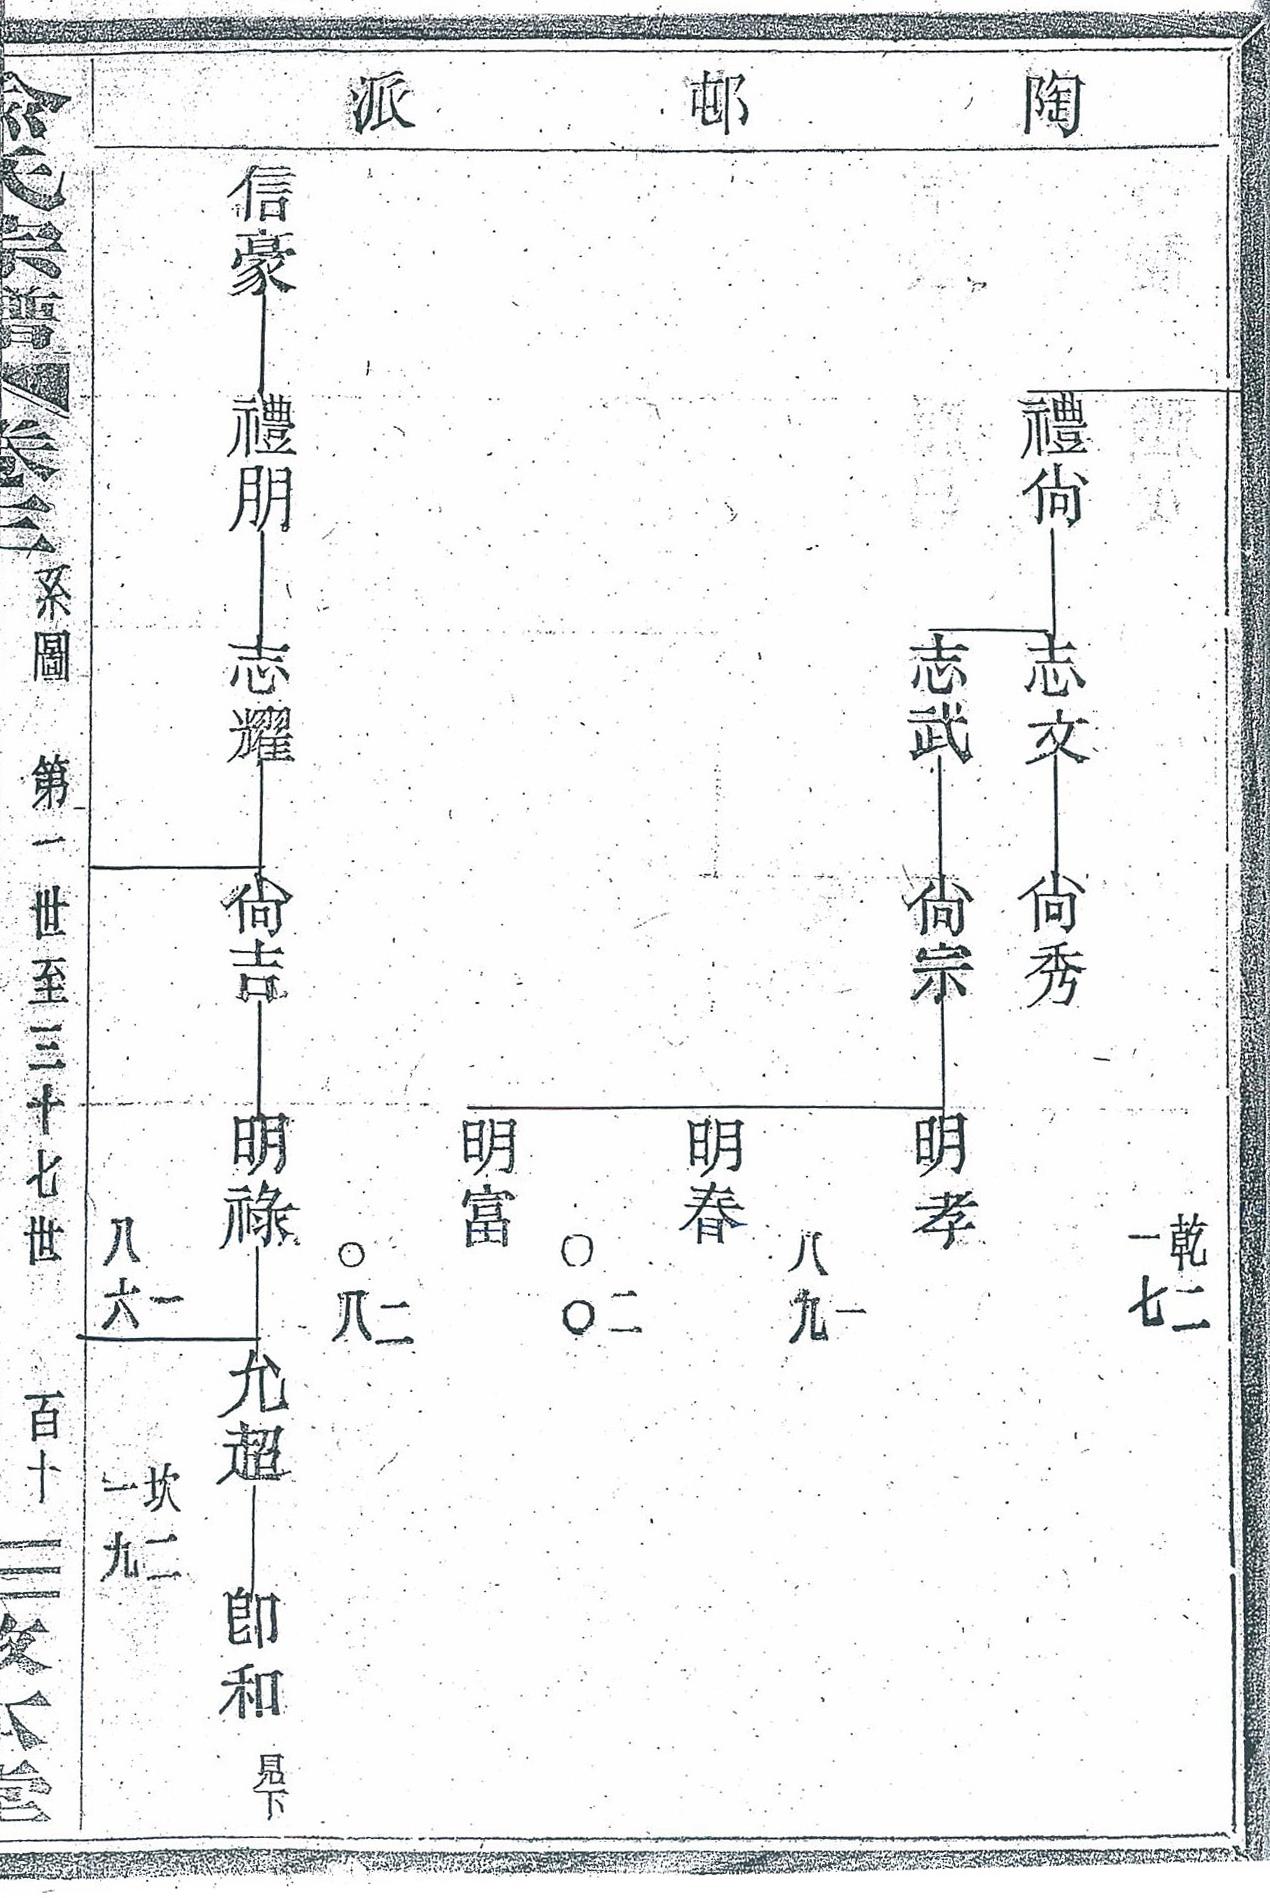 陶邨派
禮尙
志文
尙秀
志武
尙宗
明孝
乾二
一七
明春
一
八九
明富
二
〇〇
信豪
禮朋
志耀
尙吉
明祿
允超
卽和
見下
二
〇八
一
八六
坎二
一九
俞氏宗譜 卷三 系圖 第一世至三十七世 百十